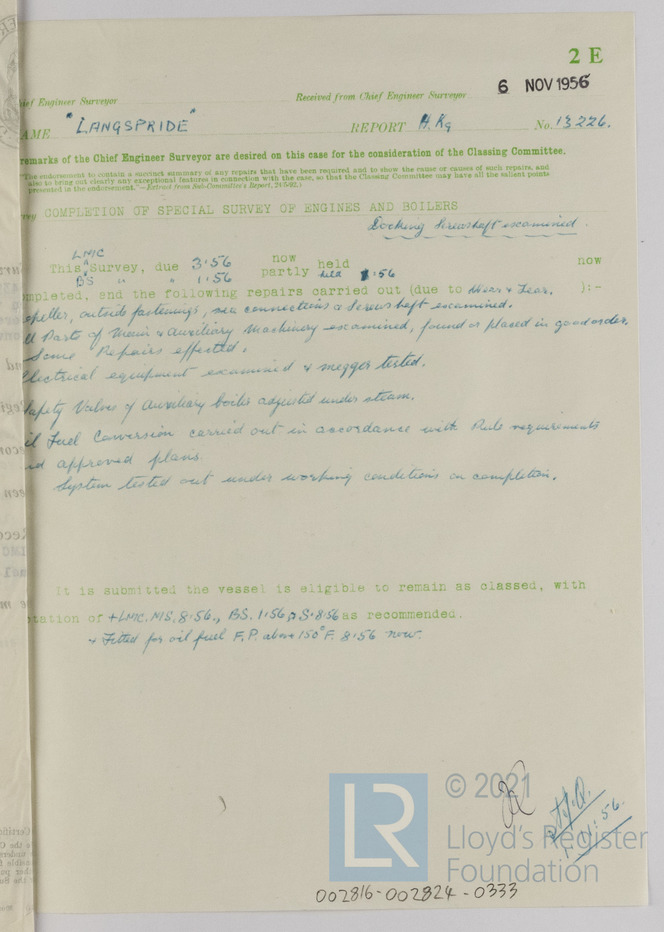 2 E
6 NOV 1956
hief Engineer Surveyor Received from Chief Engineer Surveyor
AME "LANGSPRIDE" REPORT H.Kg No. 13226.
remarks of the Chief Engineer Surveyor are desired on this case for the consideration of the Classing Committee.
"The endorsement to contain a succinct summary of any repairs that have been required and to show the cause or causes of such repairs, and
also to bring out clearly any exceptional features in connection with the case, so that the Classing Committee may have all the salient points
presented in the endorsement."—Extract from Sub-Committee's Report, 24/5/92.)
vey COMPLETION OF SPECIAL SURVEY OF ENGINES AND BOILERS
Docking Screwshaft examined.
LMC
This Survey, due 3.56 now held now
BS " " 1.56 partly held 1.56
mpleted, and the following repairs carried out (due to Wear & Tear, ):-
opeller, outside fastenings, sea connections & Screwshaft examined.
ll Parts of Main & Auxiliary Machinery examined, found or placed in good order.
Some Repairs effected.
Electrical equipment examined & megger tested.
Safety Valves of Auxiliary boiler adjusted under steam.
il Fuel Conversion carried out in accordance with Rule requirements
nd approved plans.
System tested out under working conditions on completion.
It is submitted the vessel is eligible to remain as classed, with
otation of +LMC. MS. 8.56., BS. 1.56 S. 8.56 as recommended.
+ Fitted for oil fuel F.P. above 150°F. 8.56 now.
© 2021
LR
Lloyd's Register
Foundation
1.11.56.
002816-002824-0333